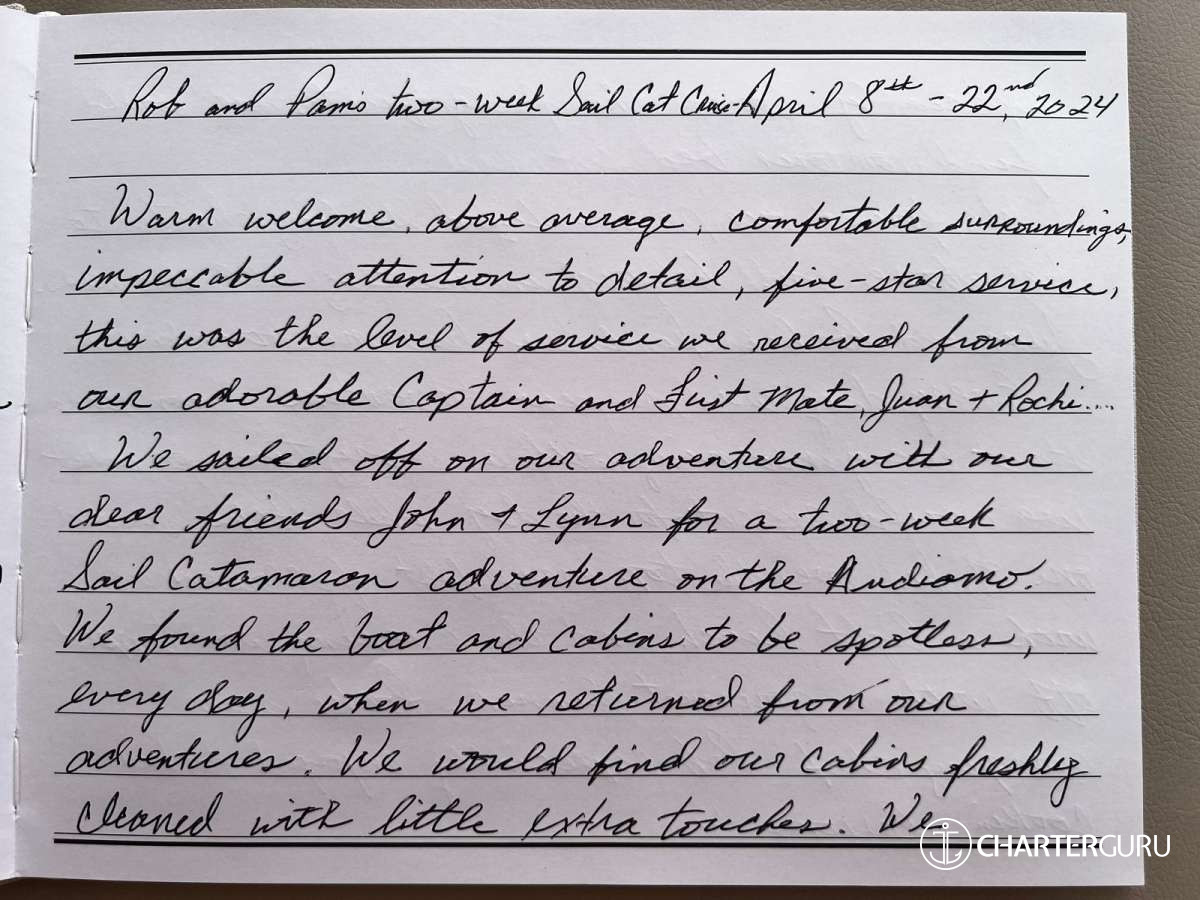 Rob and Pam's two-week Sail Cat Cruise - April 8th - 22nd, 2024
Warm welcome, above average, comfortable surroundings,
impeccable attention to detail, five-star service,
this was the level of service we received from
our adorable Captain and First Mate, Juan + Rochi....
We sailed off on our adventure with our
dear friends John + Lynn for a two-week
Sail Catamaran adventure on the Audiamo.
We found the boat and cabins to be spotless,
every day, when we returned from our
adventures. We would find our cabins freshly
cleaned with little extra touches. We
CHARTERGURU